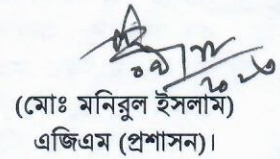 (মোঃ মনিরুল ইসলাম)
এজিএম (প্রশাসন)।